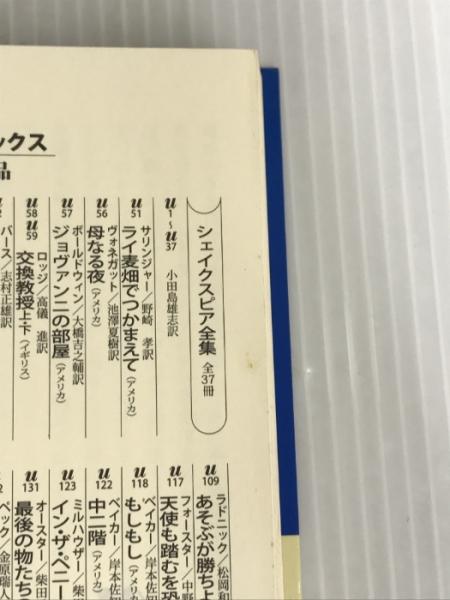 ックス
品
シェイクスピア全集 全37冊
u1〜u37 小田島雄志訳
u51 サリンジャー/野崎 孝訳
ライ麦畑でつかまえて(アメリカ)
u56 ヴォネガット/池澤夏樹訳
母なる夜(アメリカ)
u57 ボールドウィン/大橋吉之輔訳
ジョヴァンニの部屋(アメリカ)
u58 u59 ロッジ/高儀 進訳
交換教授上・下(イギリス)
バース/志村正雄訳
u109 ラドニック/松岡和
あそぶが勝ちよ
u117 フォースター/中野
天使も踏むを恐
u118 ベイカー/岸本佐知
もしもし(アメリカ)
u122 ベイカー/岸本佐知
中二階(アメリカ)
u123 ミルハウザー/柴
イン・ザ・ペニー
u131 オースター/柴田
最後の物たち
ベック/金原瑞人